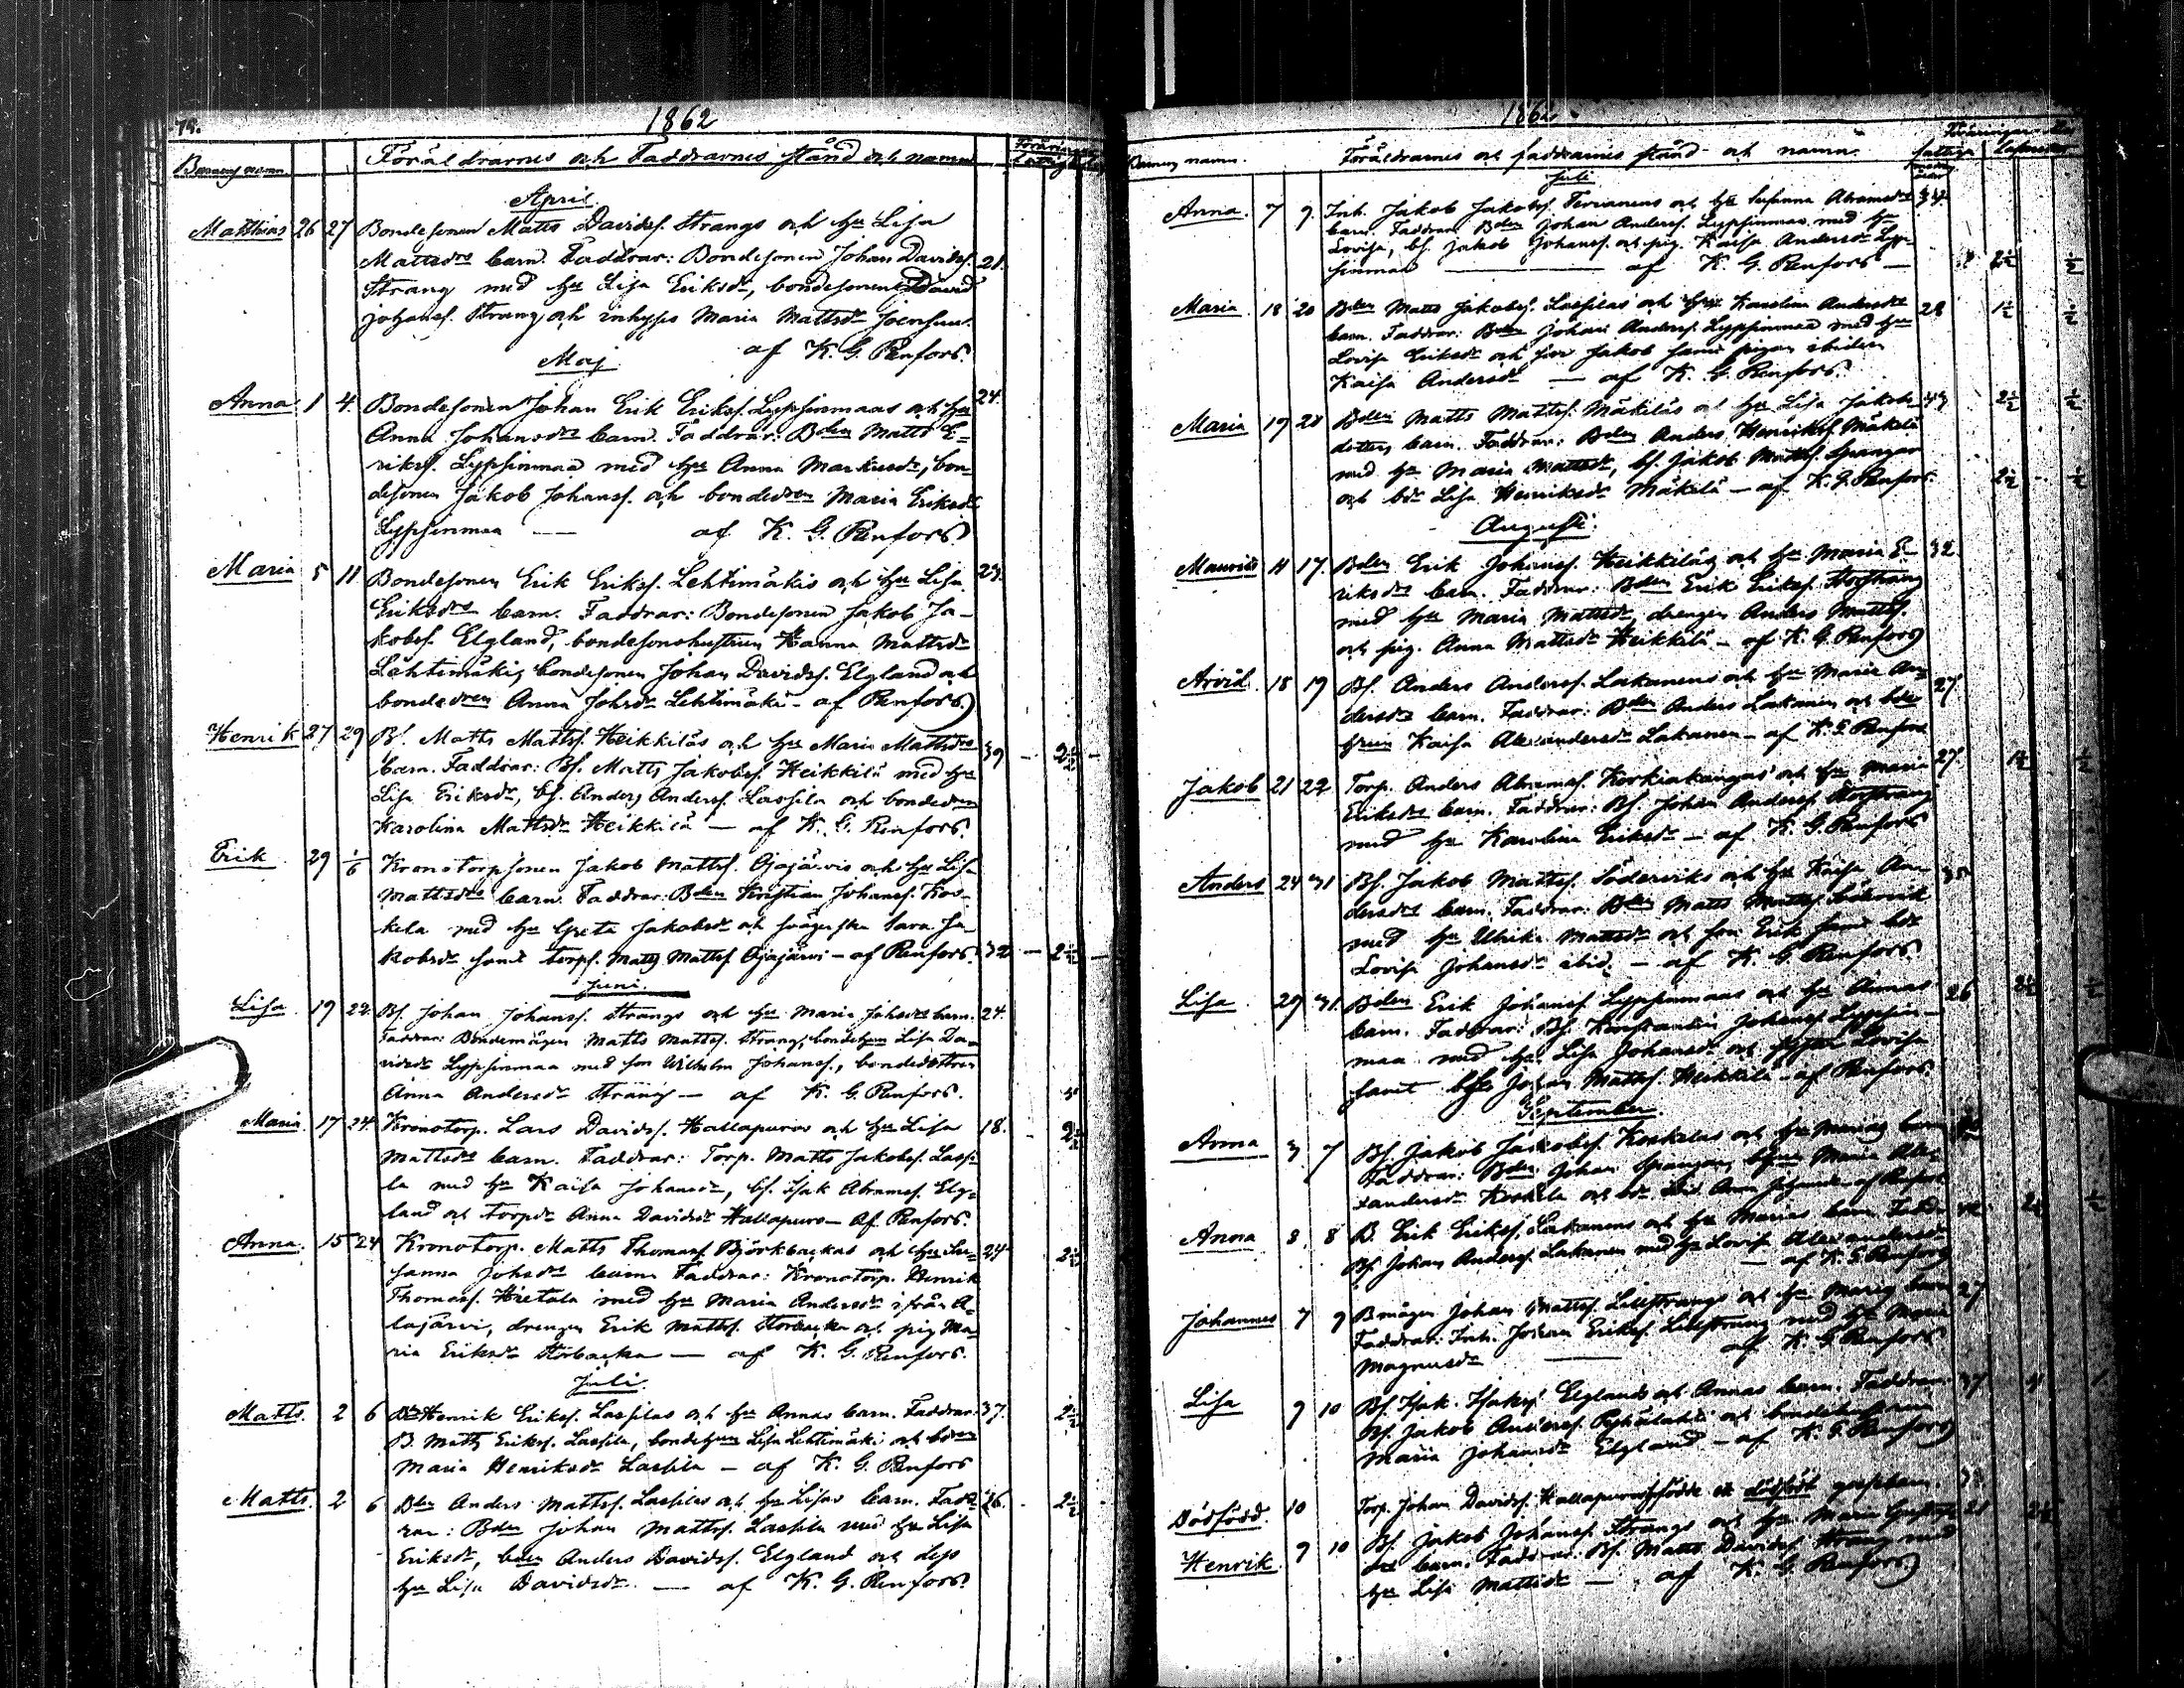 74.
1862
Barnens namn.
Föräldrarnes och Faddrarnes stånd och namn
April.
Matthias 26 27 Bondesonen Matts Davidss. Strangs och hu Lisa
Mattsdrs barn. Faddrar: Bondesonen Johan Davidss. 21.
Strang med hu Lisa Eriksdr, bondesonen David
Johanss. Strang och inhyses Maria Mattsdr Joensuu.
af K. G. Renfors.
Maj
Anna 1 4. Bondesonen Johan Erik Erikss. Lypsinmaas och hu 24.
Anna Johansdrs barn. Faddrar: Bden Matts E-
rikss. Lypsinmaa med hu Anna Markusdr, bon-
desonen Jakob Johanss. och bondedren Maria Eriksdr
Lypsinmaa — af K. G. Renfors
Maria 5 11 Bondesonen Erik Erikss. Lehtimäkis och hu Lisa 23.
Eriksdrs barn. Faddrar: Bondesonen Jakob Ja-
kobss. Elgland, bondesonshustrun Hanna Mattsdr
Lehtimäki, bondesonen Johan Davidss. Elgland och
bondedren Anna Johsdr Lehtimäki - af Renfors
Henrik 27 29 Bs. Matts Mattss. Heikkiläs och hu Maria Mattsdrs 39 — 2½ —
barn. Faddrar: Bs. Matts Jakobss. Heikkilä med hu
Lisa Eriksdr, bs. Anders Anderss. Lassila och bondedren
Karolina Mattsdr Heikkilä — af K. G. Renfors.
Erik 29 1/6 Kronotorpsonen Jakob Mattss. Ojajärvis och hu Lisa
Mattsdrs barn. Faddrar: Bden Kristian Johanss. Kos-
kela med hu Greta Jakobsdr och svägerska Sara Ja-
kobsdr samt torps. Matts Mattss. Ojajärvi - af Renfors. 32 — 2½ —
Juni.
Lisa 19 22. Bs. Johan Johanss. Strangs och hu Maria Johsdrs barn. 24.
Faddrar: Bondemågen Matts Mattss. Strang, bondehun Lisa Da-
vidsdr Lypsinmaa med son Wilhelm Johanss., bondedottren
Anna Andersdr Strang — af K. G. Renfors.
Maria 17 24. Kronotorp. Lars Davidss. Hallapuros och hu Lisa 18. 2½
Mattsdrs barn. Faddrar: Torp. Matts Jakobss. Lassi-
la med hu Kaisa Johansdr, bs. Isak Abramss. Elg-
land och torpdr Anna Davidsdr Hallapuro — Af Renfors.
Anna. 15 24 Kronotorp. Matts Thomass. Björkbackas och hu Su- 24 2½
sanna Johsdrs barn Faddrar: Kronotorp. Henrik
Thomass. Hietala med hu Maria Andersdr ifrån A-
lajärvi, drengen Erik Mattss. Storbacka och pig. Ma-
ria Eriksdr Storbacka — af K. G. Renfors.
Juli.
Matts. 2 6 Bden Henrik Erikss. Lassilas och hu Annas barn. Faddrar: 37. 2½
B. Matts Erikss. Lassila, bondehun Lisa Lehtimäki och bdren
Maria Henriksdr Lassila — af K. G. Renfors
Matts. 2 6 Bden Anders Mattss. Lassilas och hu Lisas barn. Fadd- 26. 2½
rar: Bden Johan Mattss. Lassila med hu Lisa
Eriksdr, bden Anders Davidss. Elgland och dess
hu Lisa Davidsdr. — af K. G. Renfors
1862
Barnens namn.
Föräldrarnes och faddrarnes stånd och namn.
Juli
Anna. 7 9. Inh. Jakob Jakobss. och hu Susanna Abramsdrs
barn. Faddrar: Bden Johan Anderss. Lypsinmaa med hu
Lovisa, bs. Jakob Johanss. och pig. Kaisa Andersdr Lyp-
sinmaa — af K. G. Renfors — 2½ ½
Maria 18 20 Bden Matts Jakobss. Lassilas och hu Karolina Andersdrs 28 1½ ½
barn. Faddrar: Bden Johan Anderss. Lypsinmaa med hu
Lovisa Eriksdr och son Jakob samt pigan ibidem
Kaisa Andersdr — af K. G. Renfors.
Maria 19 20 Bden Matts Mattss. Mäkiläs och hu Lisa Jakobs- 43 2½ ½
dotters barn. Faddrar: Bden Anders Henrikss. Mäkelä
med hu Maria Mattsdr, bs. Jakob Mattss. Spangar
och bdr Lisa Henriksdr Mäkelä — af K. G. Renfors. 2½ ½
Augusti.
Mauritz 11 17. Bden Erik Johanss. Heikkiläs och hu Maria E- 32
riksdrs barn. Faddrar: Bden Erik Erikss. Storstrang
med hu Maria Mattsdr, drengen Anders Mattss.
och pig. Anna Mattsdr Heikkilä — af K. G. Renfors
Arvid. 18 19 Bs. Anders Anderss. Lakanens och hu Maria An- 27
dersdrs barn. Faddrar: Bden Anders Lakanen och bde-
hrun Kaisa Alexandersdr Lakanen — af K. G. Renfors
Jakob 21 22 Torp. Anders Abramss. Korkiakangas och hu Maria 27. 1½ ½
Eriksdrs barn. Faddrar: Bs. Johan Anderss. Storstrang
med hu Karolina Eriksdr — af K. G. Renfors
Anders 24 31 Bs. Jakob Mattss. Söderviks och hu Kaisa An- 35
dersdrs barn. Faddrar: Bden Matts Mattss. Södervik
med hu Ulrika Mattsdr och son Erik samt bdr
Lovisa Johansdr ibid. — af K. G. Renfors.
Lisa. 29 31. Bden Erik Johanss. Lypsinmaas och hu Annas 26 2½ ½
barn. Faddrar: Bs. Konstantin Johanss. Lypsin-
maa med hu Lisa Johansdr och Lovisa
samt Johan Mattss. Heikkilä - af Renfors
September.
Anna 3 7 Bs. Jakob Jaskobss. Koskelas och hu Marias barn
Faddrar: Bden Johan Spangar, Maria Alex-
andersdr Koskela och bdr ibid. Anna - af Renfors
Anna 8 8 B. Erik Erikss. Lakanens och hu Marias barn. Fadd: 2½ ½
Bs. Johan Anderss. Lakanen med hu Lovisa Alexandersdr
— af K. G. Renfors
Johannes 7 9 Bmågen Johan Mattss. Lillstrangs och hu Marias barn 27
Faddrar: Inh. Johan Erikss. Lillstrang med hu Maria
Magnusdr — af K. G. Renfors
Lisa 9 10 Bs. Isak Isakss. Elglands och Annas barn. Faddrar: 37
Bs. Jakob Anderss. Pyhälahti och bondehustrun
Maria Johansdr Elgland — af K. G. Renfors
Dödfödd. 10 Torp. Johan Davidss. Hallapuros födde ett dödfödt gossebarn.
Henrik. 9 10 Bs. Jakob Johanss. Strangs och hu Maria Gustafs- 21 2½
drs barn. Faddrar: Bs. Matts Davidss. Strang med
hu Lisa Mattsdr — af K. G. Renfors